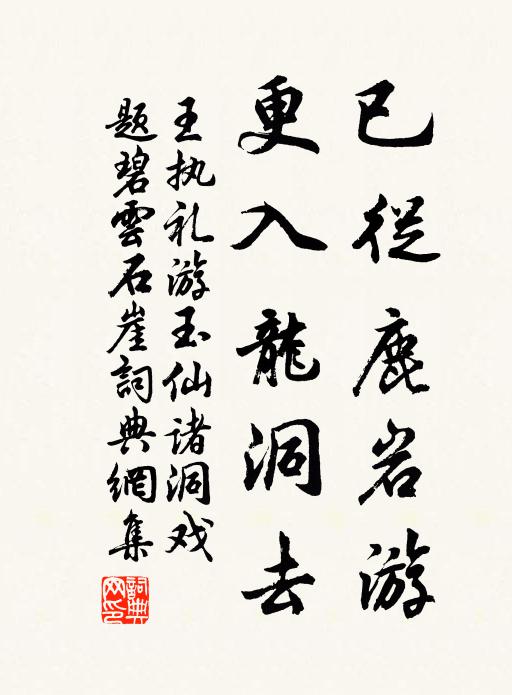 已從鹿岩游
更入龍洞去
王执礼游玉仙诸洞戏
题碧雲石崖詞典網集
詞典